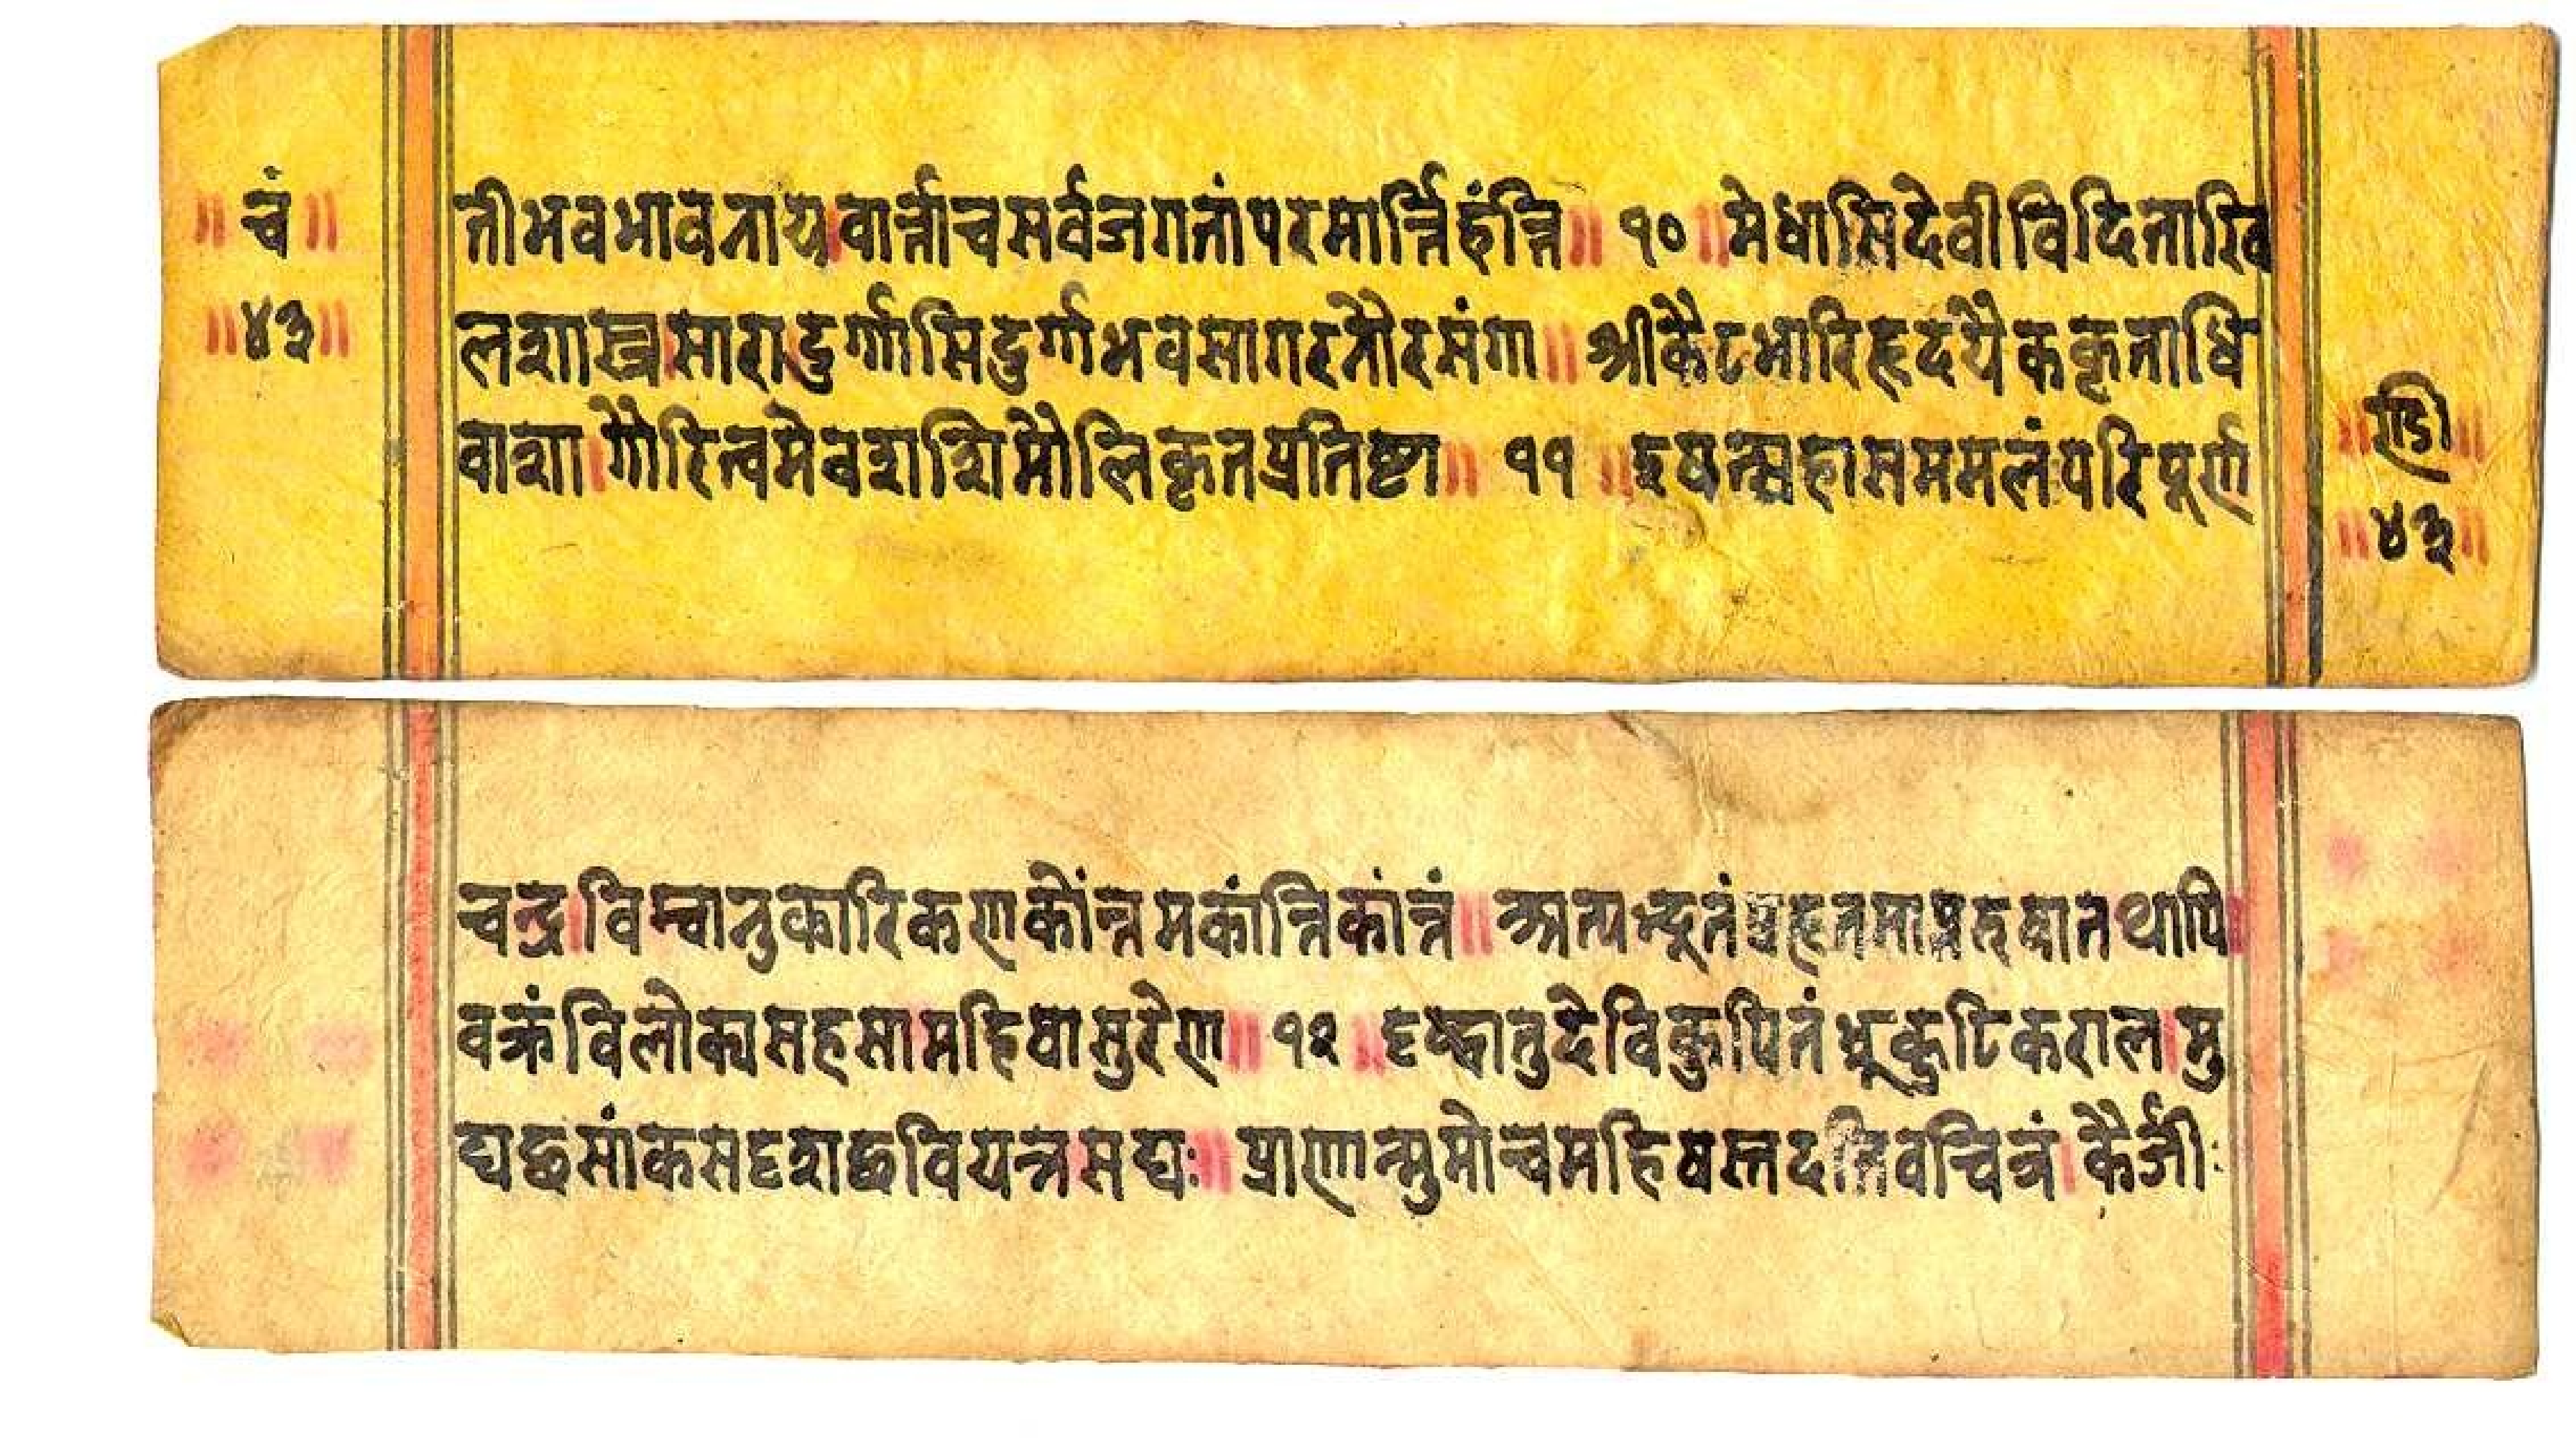 ॥ चं ॥
॥ ४३ ॥
ती भवभावनाय वार्त्ता च सर्वजगतां परमार्त्तिहंत्रि ॥ १० ॥ मेधासि देवी विदिताखि
लशास्त्रसारा दुर्गासि दुर्गभवसागरनौरसंगा ॥ श्री कैटभारिहृदयैककृताधि
वाशा । गौरि त्वमेव शशिमौलिकृतप्रतिष्टा ॥ ११ ॥ इषत्सहासममलं परिपूर्ण
॥ ण्डी ॥
॥ ४३ ॥
चन्द्र । विम्वानुकारि कणकोंत्तमकांत्तिकांत्तं ॥ अत्यद्भूतं प्रहृतमाप्तरुषा तथापि ।
वक्रं विलोक्य सहसा महिषासुरेण ॥ १२ ॥ दृष्ट्वा तु देवि कुपितं भ्रूकुटिकराल । मु
द्यछसांकसदृशछवि यन्न सद्यः ॥ प्राणान्मुमोच महिषस्तदतिवचित्रं । कैर्जी: